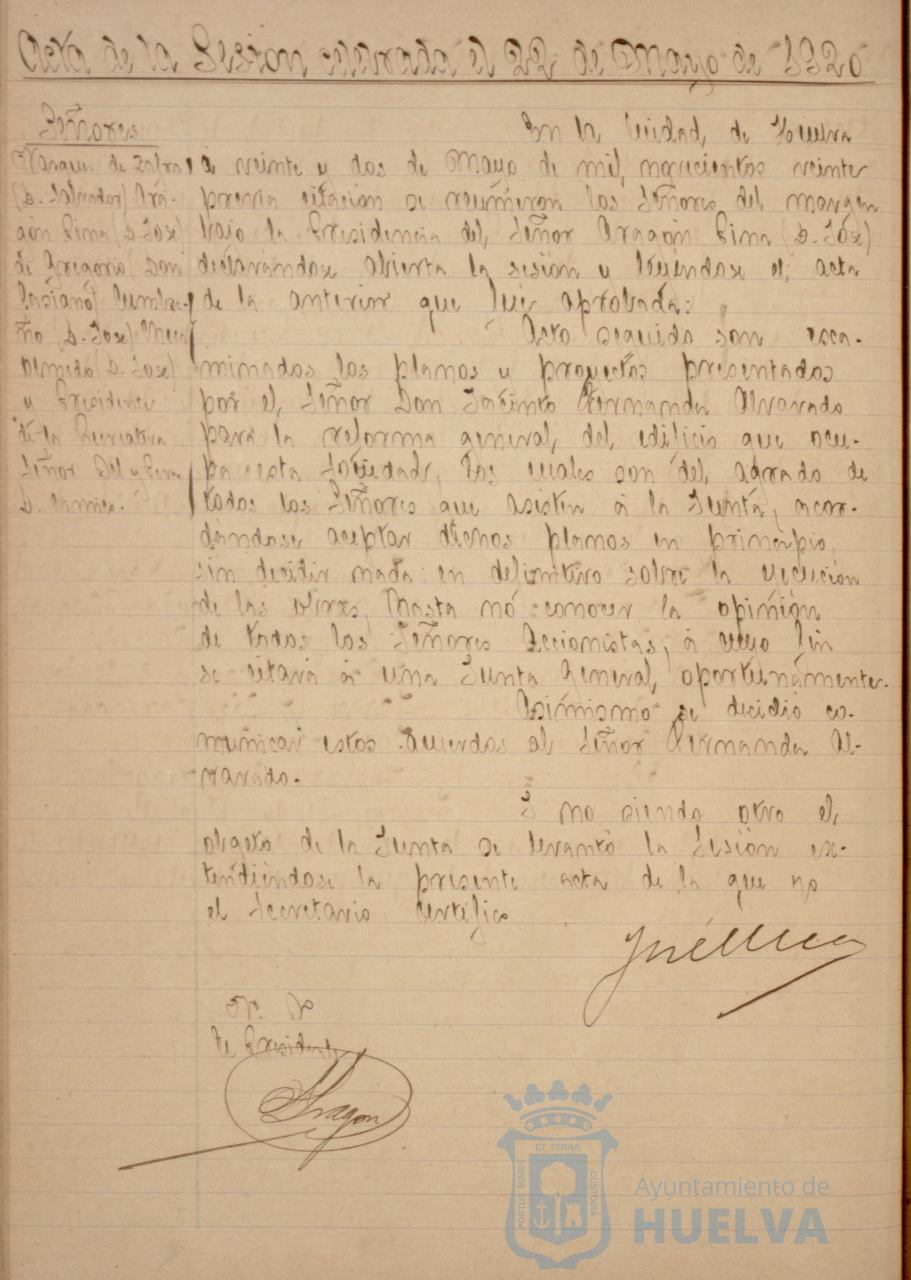 Acta de la Sesion celebrada el 22 de Mayo de 1920
Señores
Vazquez de Zafra
(D. Salvador) Ara-
gón Pina (D. José)
de Gregorio (Don
Casiano) Cumbre-
ño (D. José) Meca
(D. José)
y Presidente
de la Recreativa
Señor
D.
En la Ciudad, de Huelva
á veinte y dos de Mayo de mil, novecientos veinte
previa citación se reunieron los Señores del margen
bajo la Presidencia del, Señor Aragón Pina (D. José)
declarandose abierta la sesión y leyendose el, acta
de la anterior que fué aprobada:
Acto seguido son exa-
minados los planos y proyectos presentados
por el, Señor Don Jacinto Fernandez Alvarado
para la reforma general, del edificio que ocu-
pa esta Sociedad, los cuales son del agrado de
todos los Señores que asisten á la Junta, acor-
dándose aceptar dichos planos en principio,
sin decidir nada en definitivo sobre la ejecucion
de las obras, hasta nó conocer la opinión
de todos los Señores Accionistas, á cuyo fin
se citará á una Junta General, oportunamente.
Asimismo se decidió co-
municar estos acuerdos al Señor Fernandez Al-
varado.
Y no siendo otro el,
objeto de la Junta se levantó la Sesión ex-
tendiéndose la presente acta de la que yo
el Secretario Certifico
José Meca
Vº. Bº
El Presidente
Aragon
ET TERRÆ
PORTUS MARIS
CUSTODIA
Ayuntamiento de
HUELVA